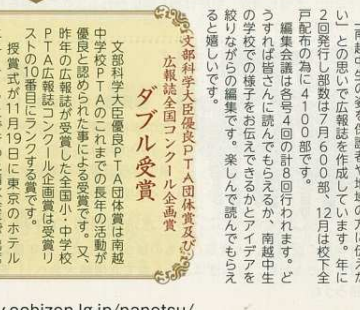 い」との思いで広報誌を作成しています。年に
2回発行し部数は7月600部、12月は校下全
戸配布の為に4100部です。
編集会議は各号4回の計8回行われます。ど
うすれば皆さんに読んでもらえるか、南越中生
の学校での様子をお伝えできるかとアイデアを
絞りながらの編集です。楽しんで読んでもらえ
ると嬉しいです。
文部科学大臣優良PTA団体賞及び
広報誌全国コンクール企画賞
ダブル受賞
文部科学大臣優良PTA団体賞は南越
中学校PTAのこれまでの長年の活動が
優良と認められた事による受賞です。又、
昨年の広報誌が受賞した全国小・中学校
PTA広報誌コンクール企画賞は受賞リ
ストの10番目にランクする賞です。
授賞式が11月19日に東京のホテル